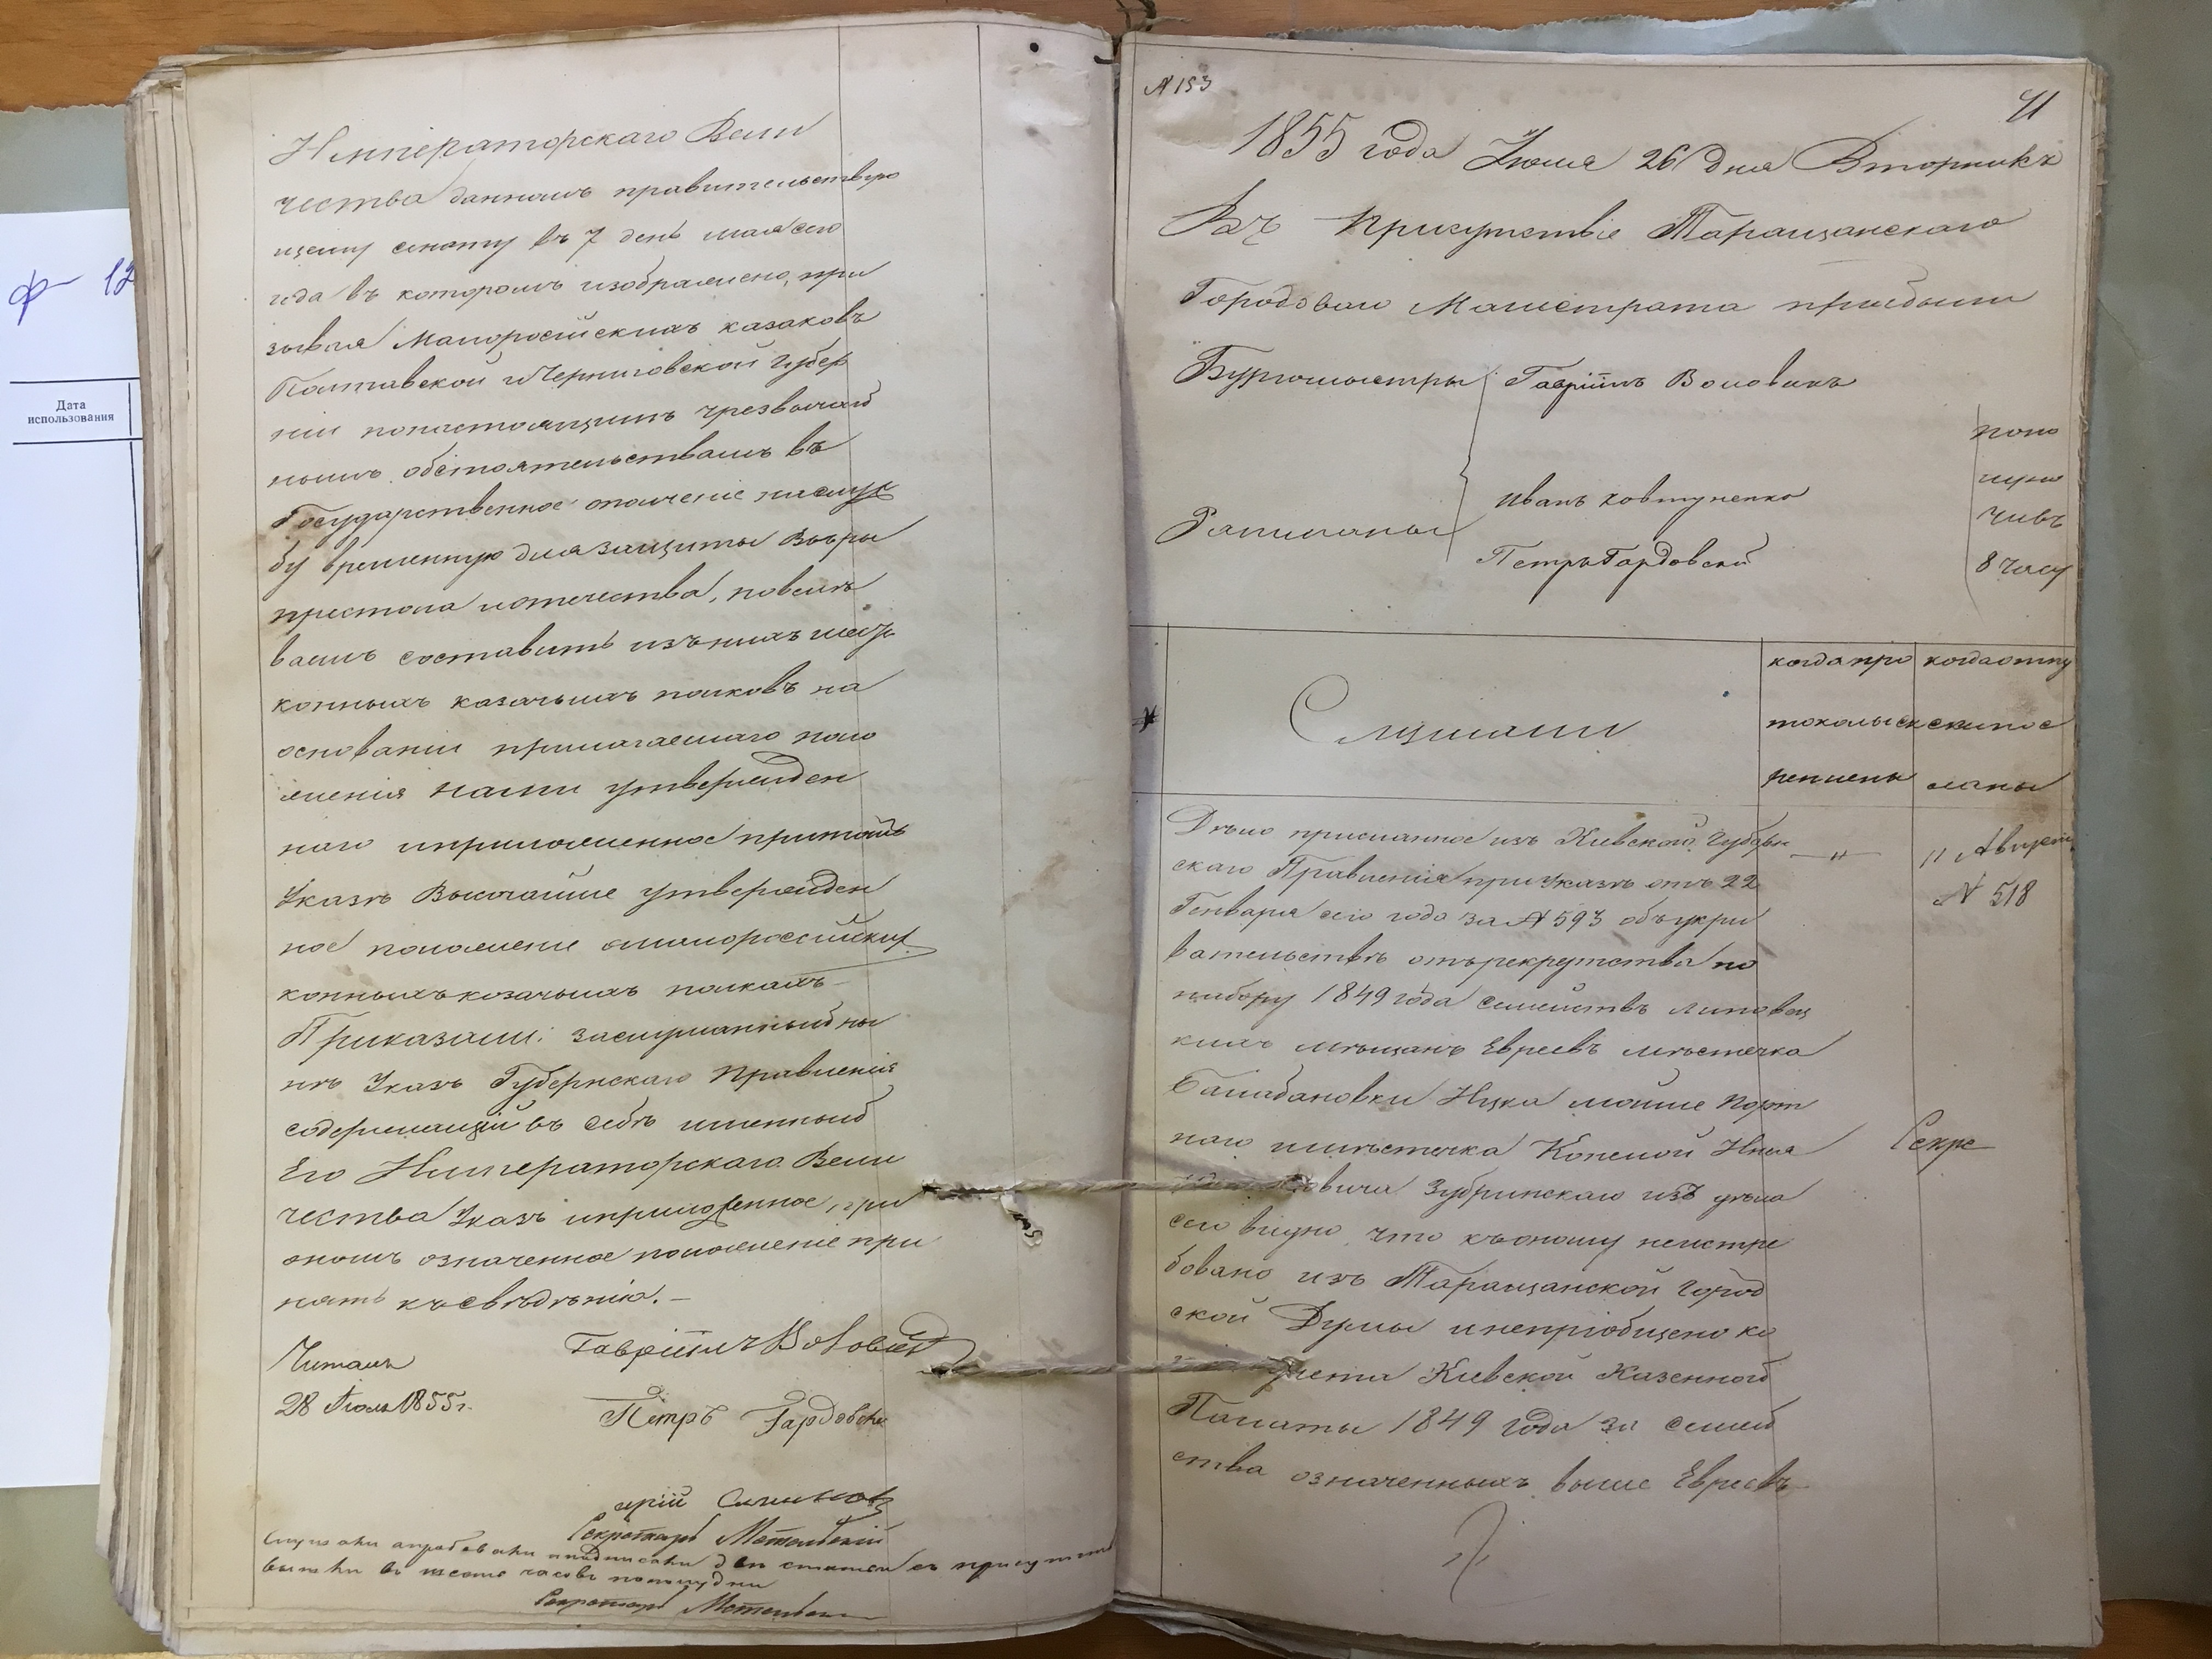 ф 12
Дата
использования
Императорскаго Вели
чества данномъ правительствую
щему сенату въ 7 день мая сего
года въ которомъ изображено, при
зывая Малоросійскихъ казаковъ
Полтавской и Черниговской губер
ніи понастоящимъ чрезвычай
нымъ обстоятельствамъ въ
Государственное ополченіе наслуж
бу временную для защиты Вѣры
престола и отечества, повелѣ
ваемъ составить изънихъ шесть
конныхъ казачьихъ полковъ на
основаніи прилагаемаго поло
женія нами утвержден
наго и приложенное притомъ
Указѣ Высочайше утвержден
ное положеніе омалороссійскихъ
конныхъ козачьихъ полкахъ
Приказали: заслушанный ны
нѣ Указъ Губернскаго Правленія
содержащій въ себѣ именный
Его Императорскаго Вели
чества Указъ и приложенное при
ономъ означенное положеніе при
нять къ свѣдѣнію. —
Читалъ
28 Іюля 1855 г.
Гавріилъ Воловик
Петръ Гардовски
Секретарь
Слушали апробовали и подписали два статьи съ присутств
вышли въ часовъ пополудни
Секретарь
№ 153
41
1855 года Іюля 26 дня Вторникъ
Въ Присутствіе Таращанскаго
Городоваго Магистрата прибыли
Бургомистры Гавріилъ Воловикъ
Ратманы Иванъ Ковтуненко
Петръ Гардовский
попо
луно
чивъ
8 часу
Слушали
когда про
токолы ск
решены
когда отпу
ски пос
ланы
Дѣло присланное изъ Киевской Губерн
скаго Правленія при Указѣ отъ 22
Генваря сего года за № 593 объ укри
вательствѣ отърекрутства по
набору 1849 года семействъ Липовец
кихъ мѣщанъ Евреевъ мѣстечка
Балабановки Ицка мошие Порт
наго и мѣстечка Копелой
овича Зубринскаго изъ дѣла
сего видно, что къоному неистре
бовано изъ Таращанской город
ской Думы и непріобщено ко
Киевской Казенной
Палаты 1849 года за семей
ства означенныхъ выше Евреевъ
—"—
11 Августа
№ 518
Секре